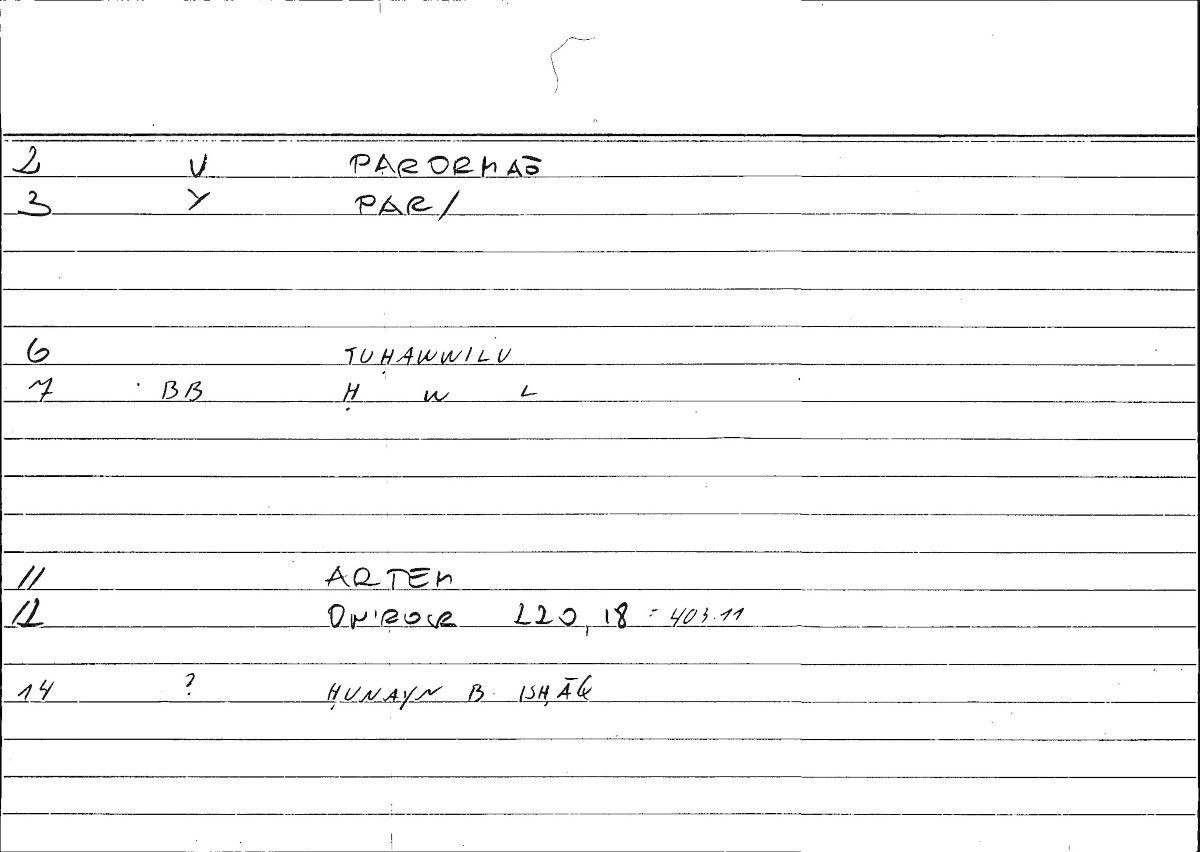 2 V PARORMAŌ
3 Y PAR/
6 TUḤAWWILU
7 BB Ḥ W L
11 ARTEM
12 ONIROCR 220,18 = 403.11
14 ? ḤUNAYN B. ISḤĀQ